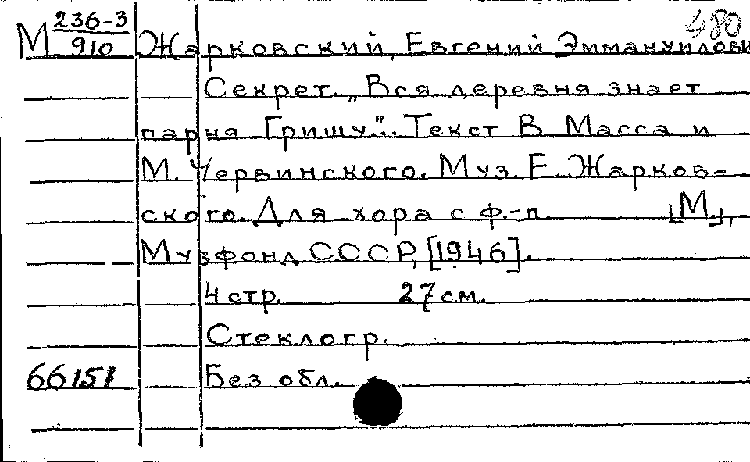 480
М 236-3/910 Жарковский, Евгений Эммануилови
Секрет. „Вся деревня знает
парня Гришу". Текст В. Масса и
М. Червинского. Муз. Е. Жарков-
ского. Для хора с ф-п. [М.],
Музфонд СССР, [1946].
4 стр. 27 см.
Стеклогр.
66151 Без обл.